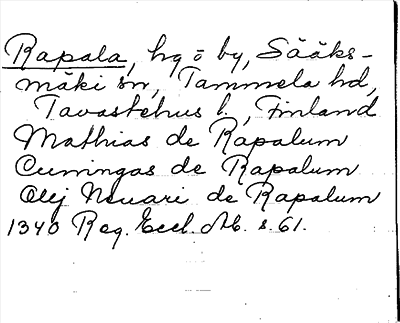 Rapala, hg o by, Sääks-
mäki sn, Tammela hd,
Tavastehus l., Finland
Mathias de Rapalum
Cuningas de Rapalum
Olej Neuari de Rapalum
1340 Reg. Eccl. Ab. s. 61.